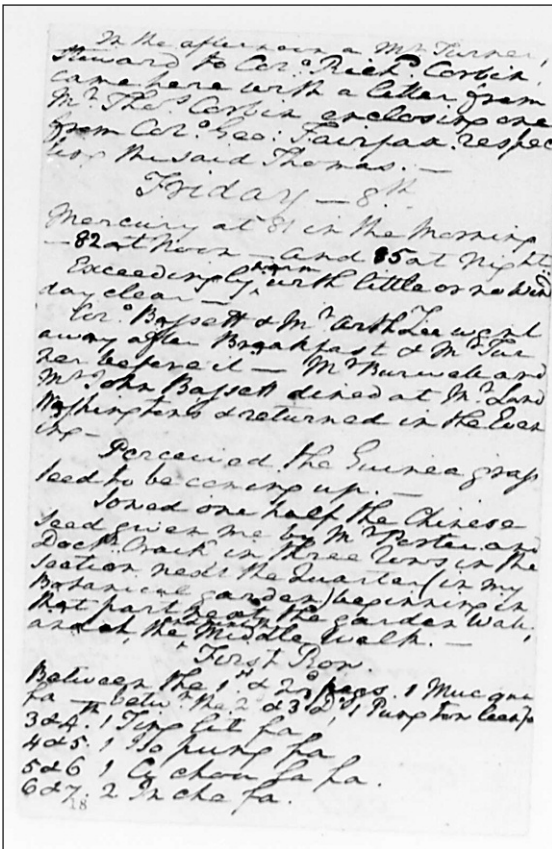 In the afternoon a Mr. Turner,
Steward to Colo. Richd. Corbin,
came here with a letter from
Mr. Thos. Corbin enclosing one
from Colo. Geo: Fairfax respec
ting the said Thomas. —
Friday — 8th.
Mercury at 81 in the Morning
— 82 at Noon — and 85 at Night
Exceedingly warm with little or no wind
day clear —
Colo. Bassett & Mr. Arth Lee went
away after Breakfast & Mr. Tur
ner before it — Mr Burwell and
Mr. John Bassett dined at Mr. Lund
Washingtons & returned in the Even
ing —
Perceived the Guinea grass
seed to be coming up. —
Sowed one half the Chinese
Seed given me by Mr. Porter and
Doctr. Craik in three rows in the
section next the Quarter (in my
Botanical garden) beginning in
that part next the garden Wall,
and at the Middle walk. —
First Row
Between the 1st. & 2d. pegs. 1 Muc qua
fa — betwn. the 2 & 3 d. 1 Pung ton leen fa
3 & 4th. 1 Ting lit fa
4 & 5. 1 Iso pung fa
5 & 6 1 Cy chou la fa.
6 & 7. 2 In che fa.
18